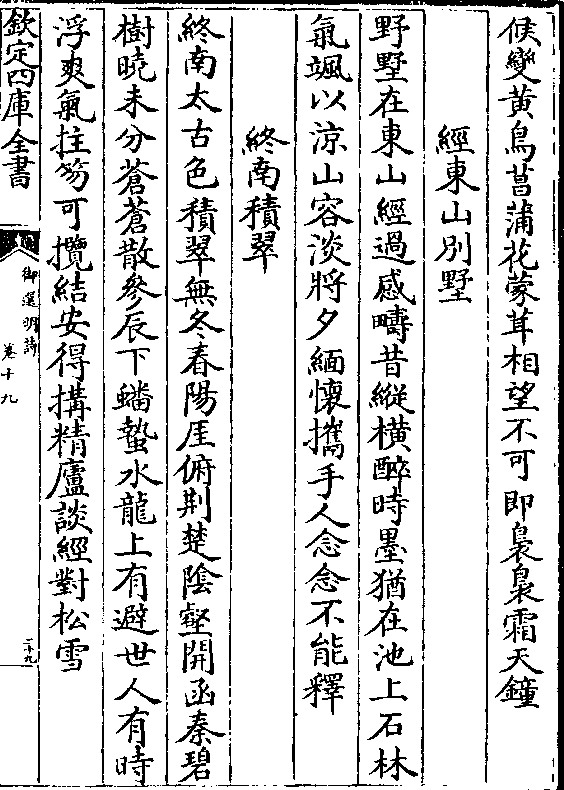 候變黃鳥菖蒲花蒙茸相望不可即裊裊霜天鐘
經東山別墅
野墅在東山經過感疇昔縱橫醉時墨猶在池上石林
氣颯以涼山容淡將夕緬懷攜手人念念不能釋
終南積翠
終南太古色積翠無冬春陽厓俯荆楚陰壑開函秦碧
樹曉未分蒼蒼散參辰下蟠蟄水龍上有避世人有時
浮爽氣拄笏可攬結安得搆精廬談經對松雪
欽定四庫全書
御選明詩
卷十九
二十九